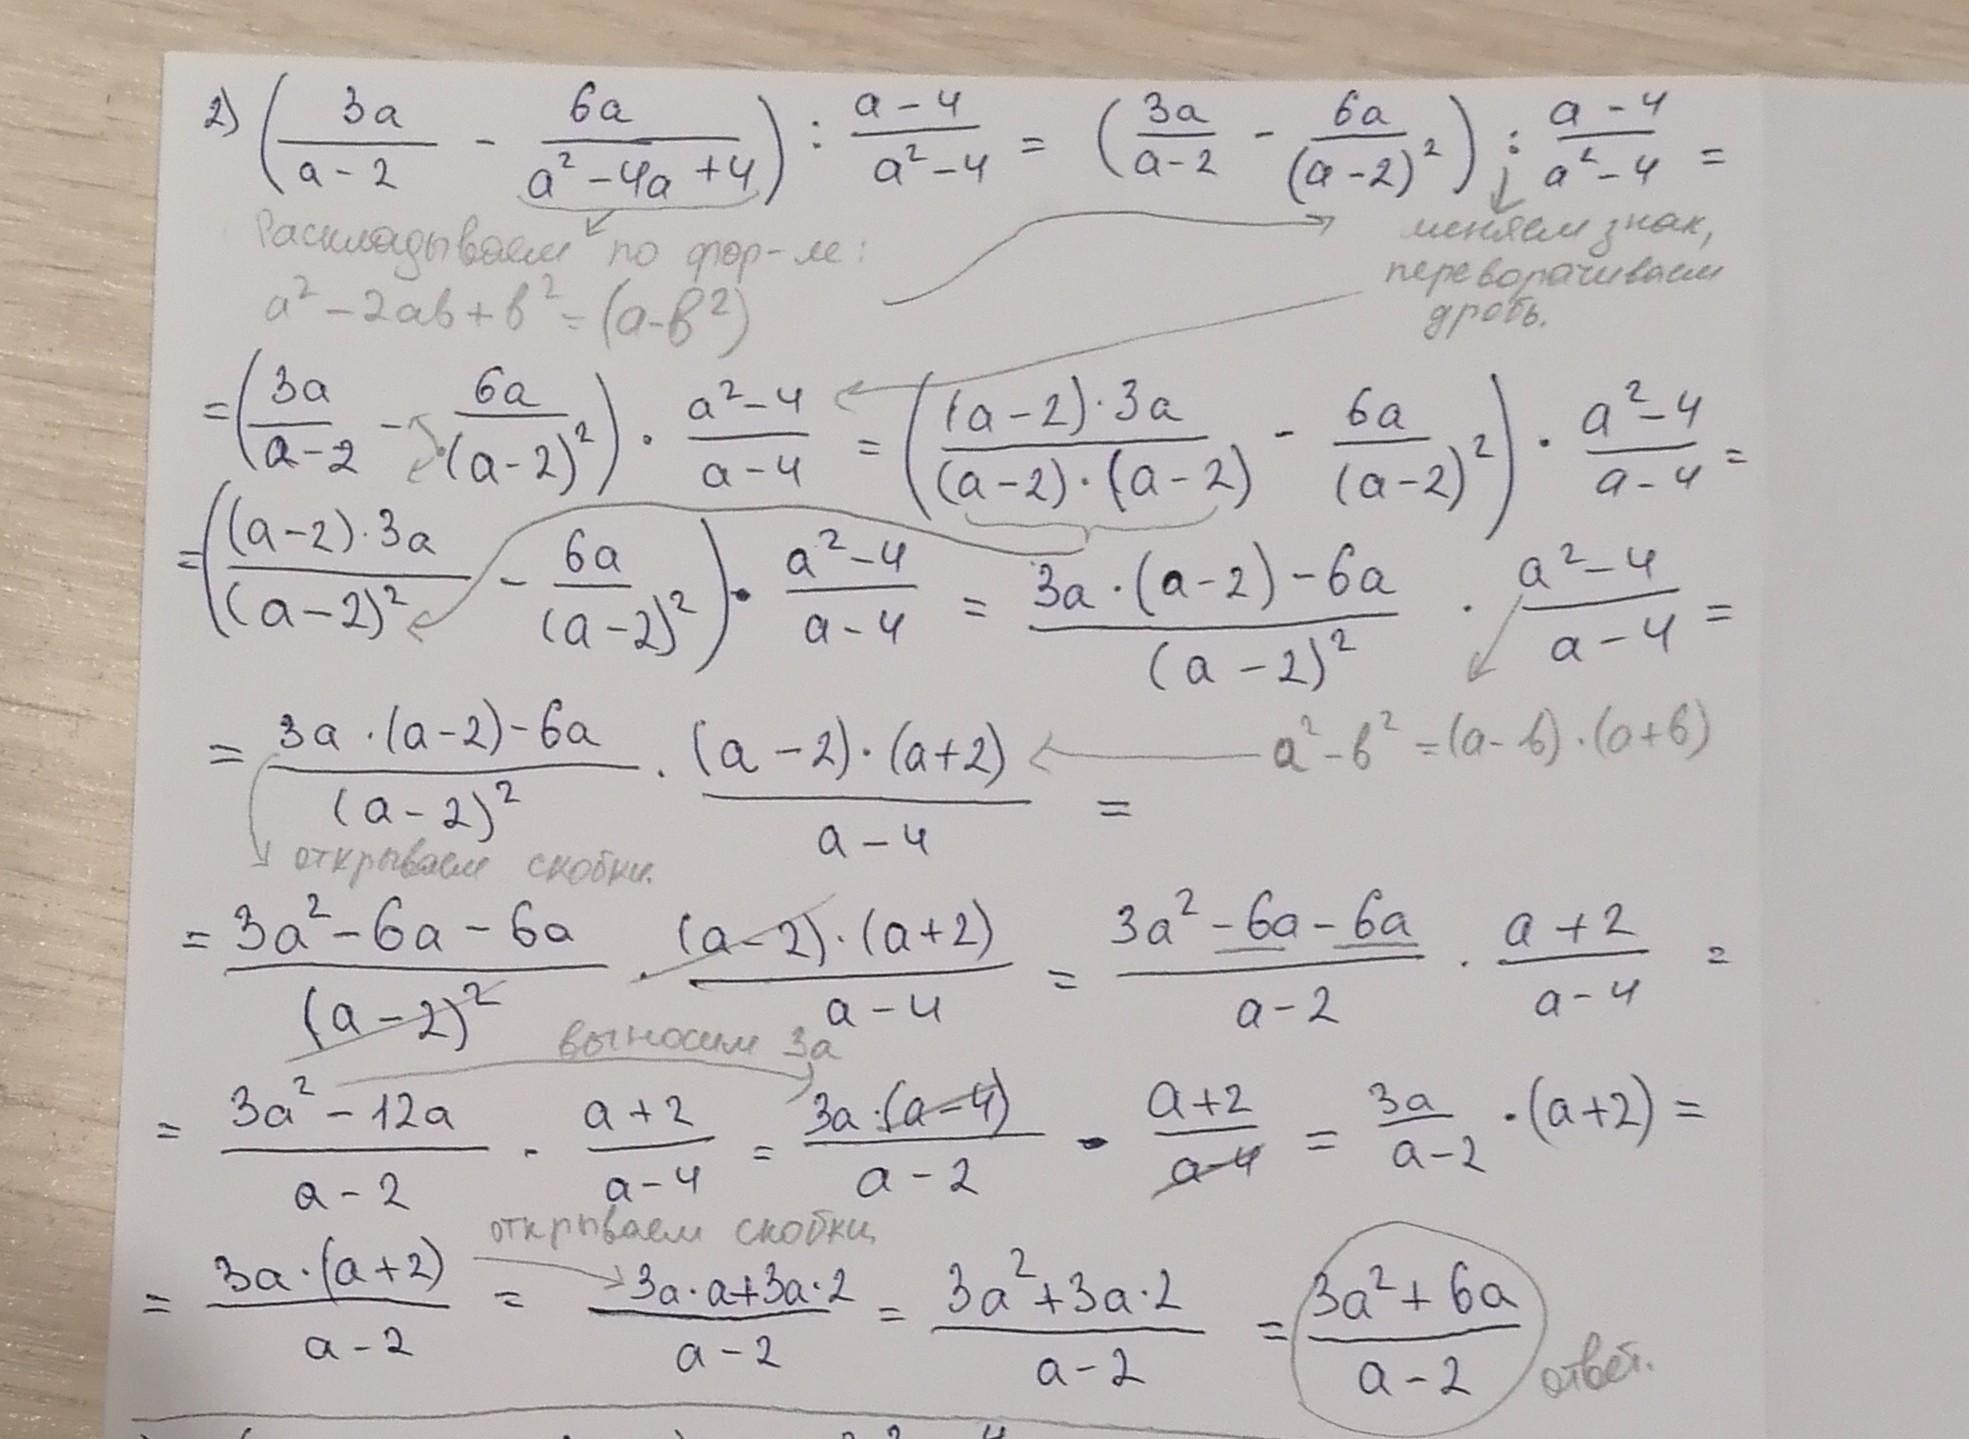 2) (3a/(a-2) - 6a/(a²-4a+4)) : (a-4)/(a²-4) = (3a/(a-2) - 6a/(a-2)²) : (a-4)/(a²-4) =
Раскладываем по фор-ле:
a²-2ab+b²=(a-b²)
меняем знак,
переворачиваем
дробь.
=(3a/(a-2) - 6a/(a-2)²) · (a²-4)/(a-4) = ((a-2)·3a/((a-2)·(a-2)) - 6a/(a-2)²) · (a²-4)/(a-4) =
=((a-2)·3a/(a-2)² - 6a/(a-2)²) · (a²-4)/(a-4) = (3a·(a-2)-6a)/(a-2)² · (a²-4)/(a-4) =
= (3a·(a-2)-6a)/(a-2)² · (a-2)·(a+2)/(a-4) =
a²-b²=(a-b)·(a+b)
открываем скобки.
= (3a²-6a-6a)/(a-2)² · (a-2)·(a+2)/(a-4) = (3a²-6a-6a)/(a-2) · (a+2)/(a-4) =
выносим 3a
= (3a²-12a)/(a-2) · (a+2)/(a-4) = 3a·(a-4)/(a-2) · (a+2)/(a-4) = 3a/(a-2) · (a+2) =
открываем скобки
= 3a·(a+2)/(a-2) = (3a·a+3a·2)/(a-2) = (3a²+3a·2)/(a-2) = (3a²+6a)/(a-2)
ответ.